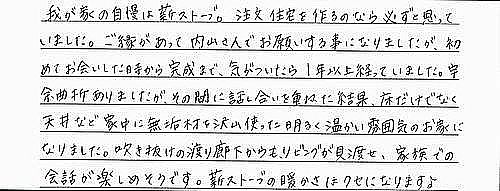 我が家の自慢は薪ストーブ。注文住宅を作るのなら必ずと思って
いました。ご縁があって内山さんでお願いする事になりましたが、初
めてお会いした時から完成まで、気がついたら1年以上経っていました。紆
余曲折ありましたが、その間に話し合いを重ねた結果、床だけでなく
天井など家中に無垢材を沢山使った明るく温かい雰囲気のお家に
なりました。吹き抜けの渡り廊下からもリビングが見渡せ、家族での
会話が楽しめそうです。薪ストーブの暖かさはクセになりますよ